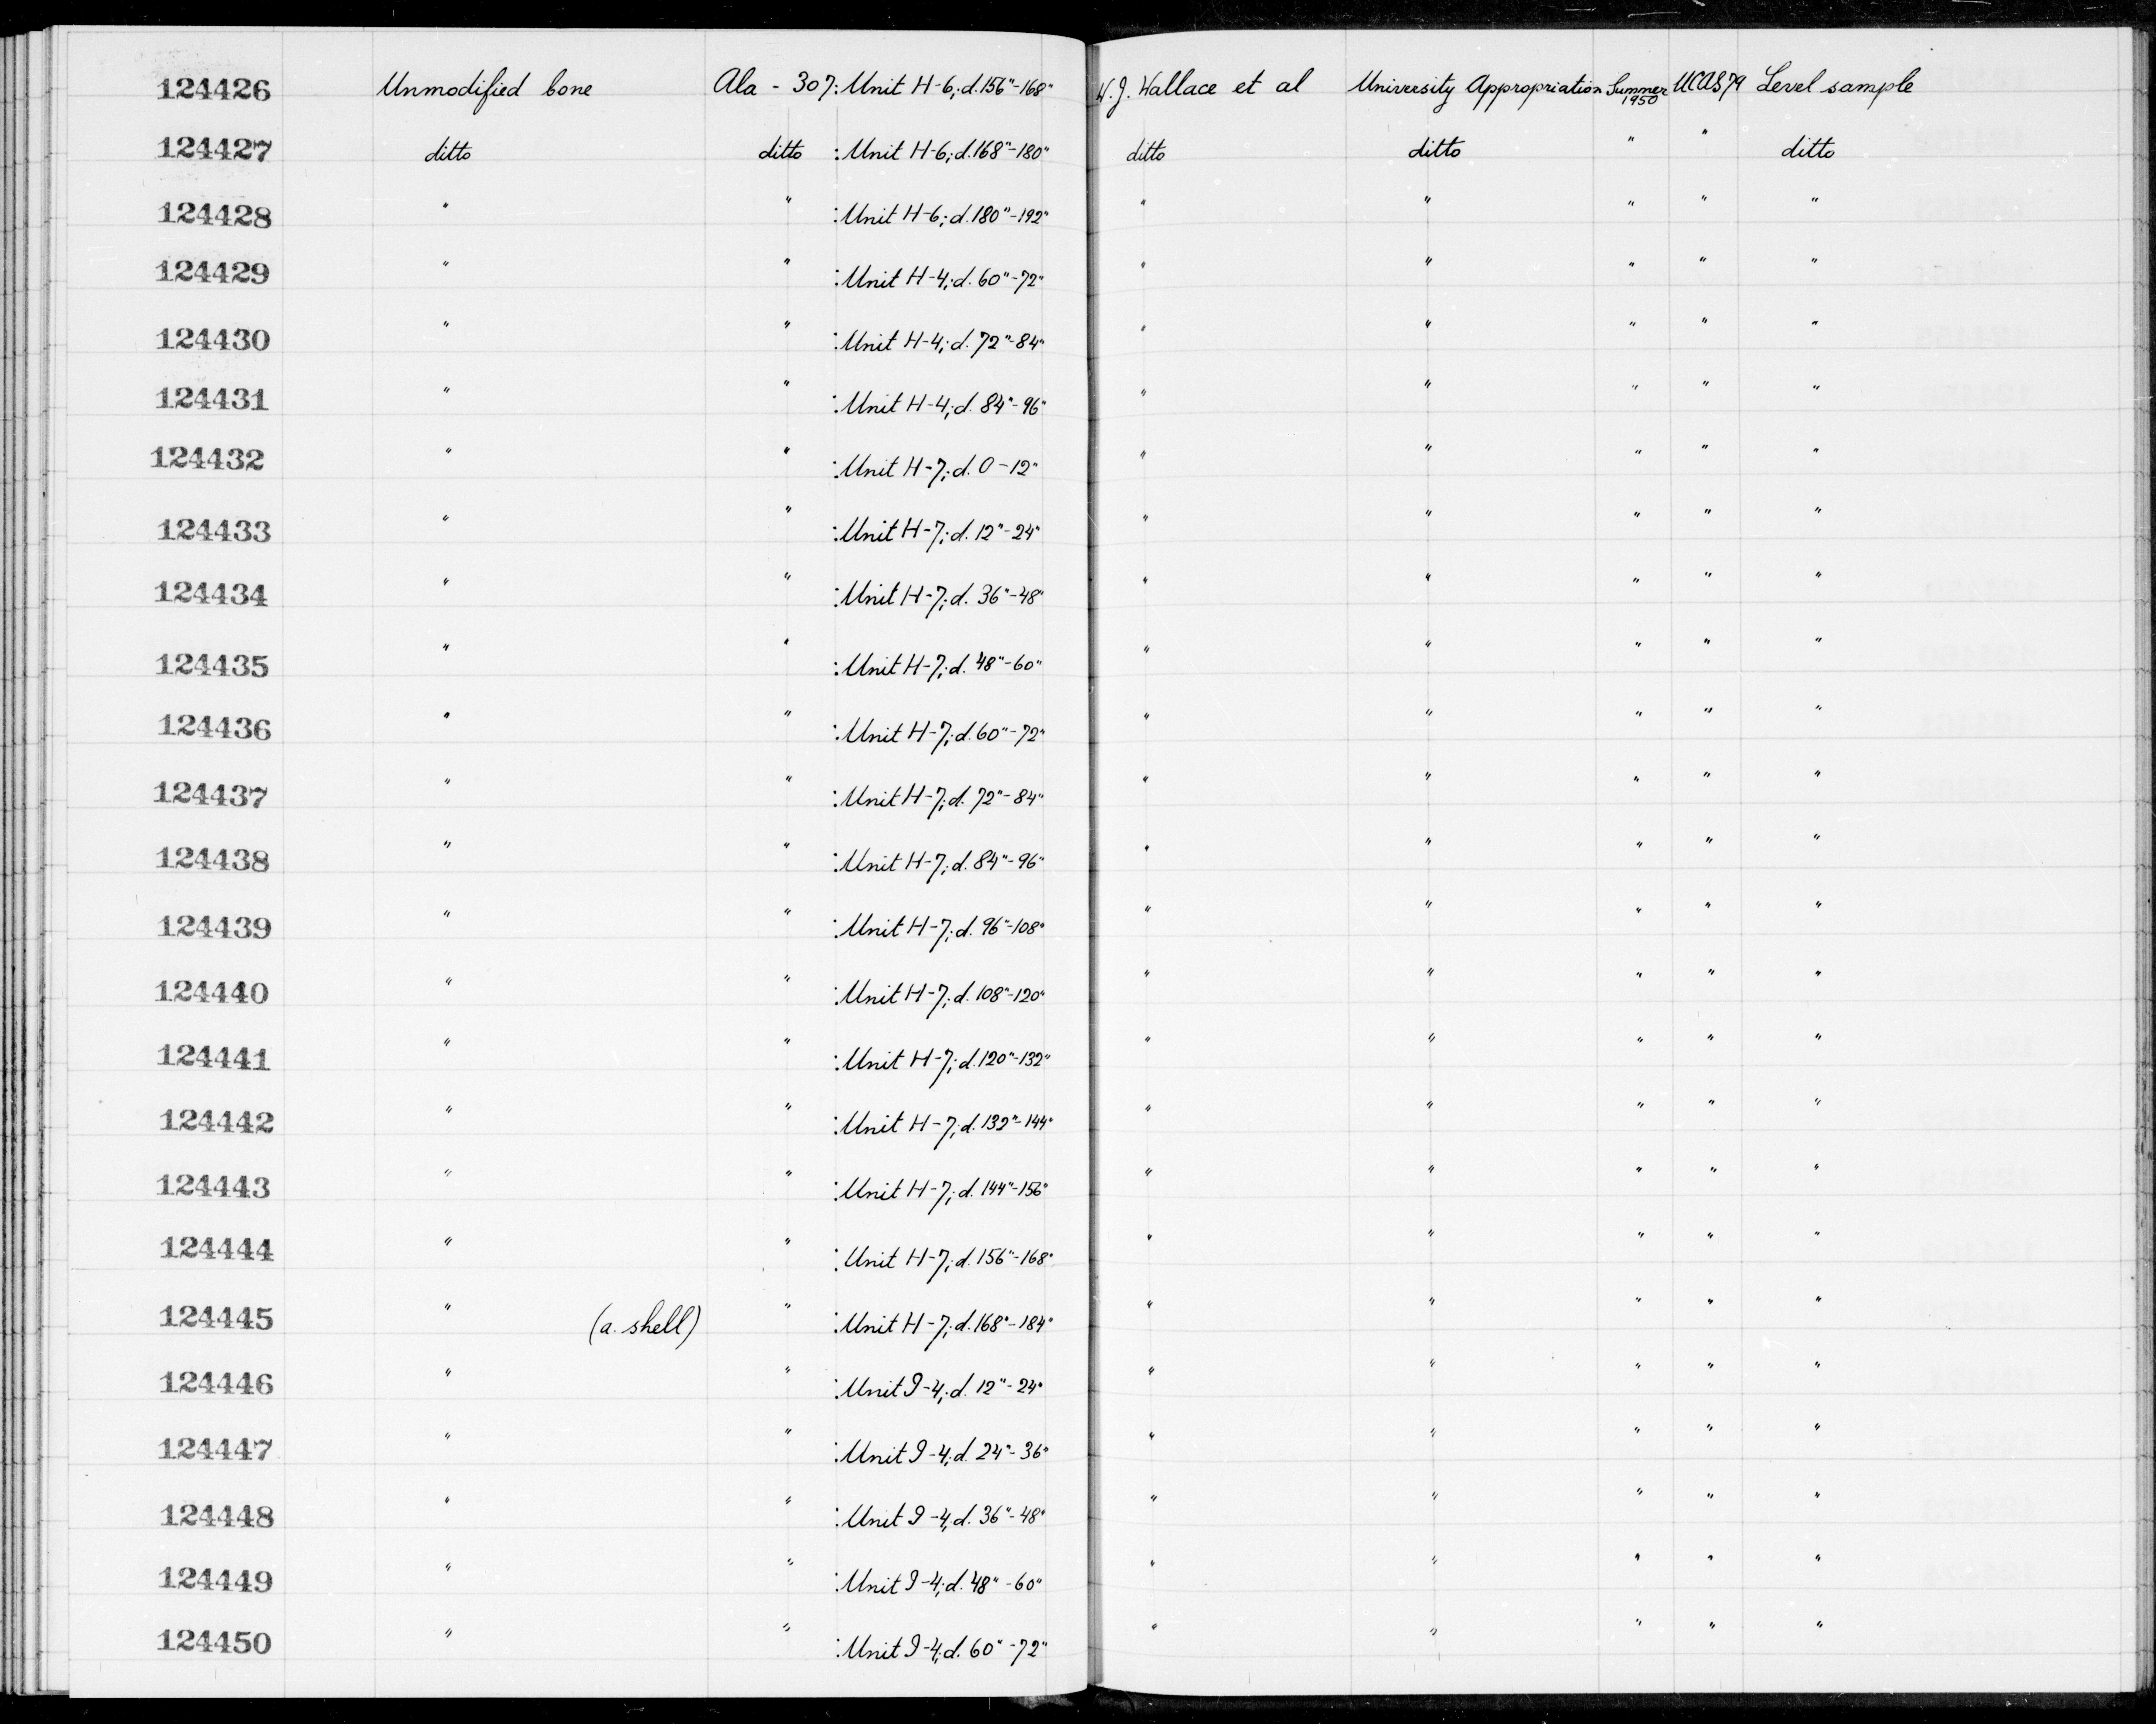 124426 Unmodified bone Ala - 307: Unit H-6; d. 156"-168" W. J. Wallace et al University Appropriation Summer 1950 UCAS 79 Level sample
124427 ditto ditto : Unit H-6; d. 168"-180" ditto ditto " " ditto
124428 " " : Unit H-6; d. 180"-192" " " " " "
124429 " " : Unit H-4; d. 60"-72" " " " " "
124430 " " : Unit H-4; d. 72"-84" " " " " "
124431 " " : Unit H-4; d. 84"-96" " " " " "
124432 " " : Unit H-7; d. 0-12" " " " " "
124433 " " : Unit H-7; d. 12"-24" " " " " "
124434 " " : Unit H-7; d. 36"-48" " " " " "
124435 " " : Unit H-7; d. 48"-60" " " " " "
124436 " " : Unit H-7; d. 60"-72" " " " " "
124437 " " : Unit H-7; d. 72"-84" " " " " "
124438 " " : Unit H-7; d. 84"-96" " " " " "
124439 " " : Unit H-7; d. 96"-108" " " " " "
124440 " " : Unit H-7; d. 108"-120" " " " " "
124441 " " : Unit H-7; d. 120"-132" " " " " "
124442 " " : Unit H-7; d. 132"-144" " " " " "
124443 " " : Unit H-7; d. 144"-156" " " " " "
124444 " " : Unit H-7; d. 156"-168" " " " " "
124445 " (a. shell) " : Unit H-7; d. 168"-184" " " " " "
124446 " " : Unit I-4; d. 12"-24" " " " " "
124447 " " : Unit I-4; d. 24"-36" " " " " "
124448 " " : Unit I-4; d. 36"-48" " " " " "
124449 " " : Unit I-4; d. 48"-60" " " " " "
124450 " " : Unit I-4; d. 60"-72" " " " " "